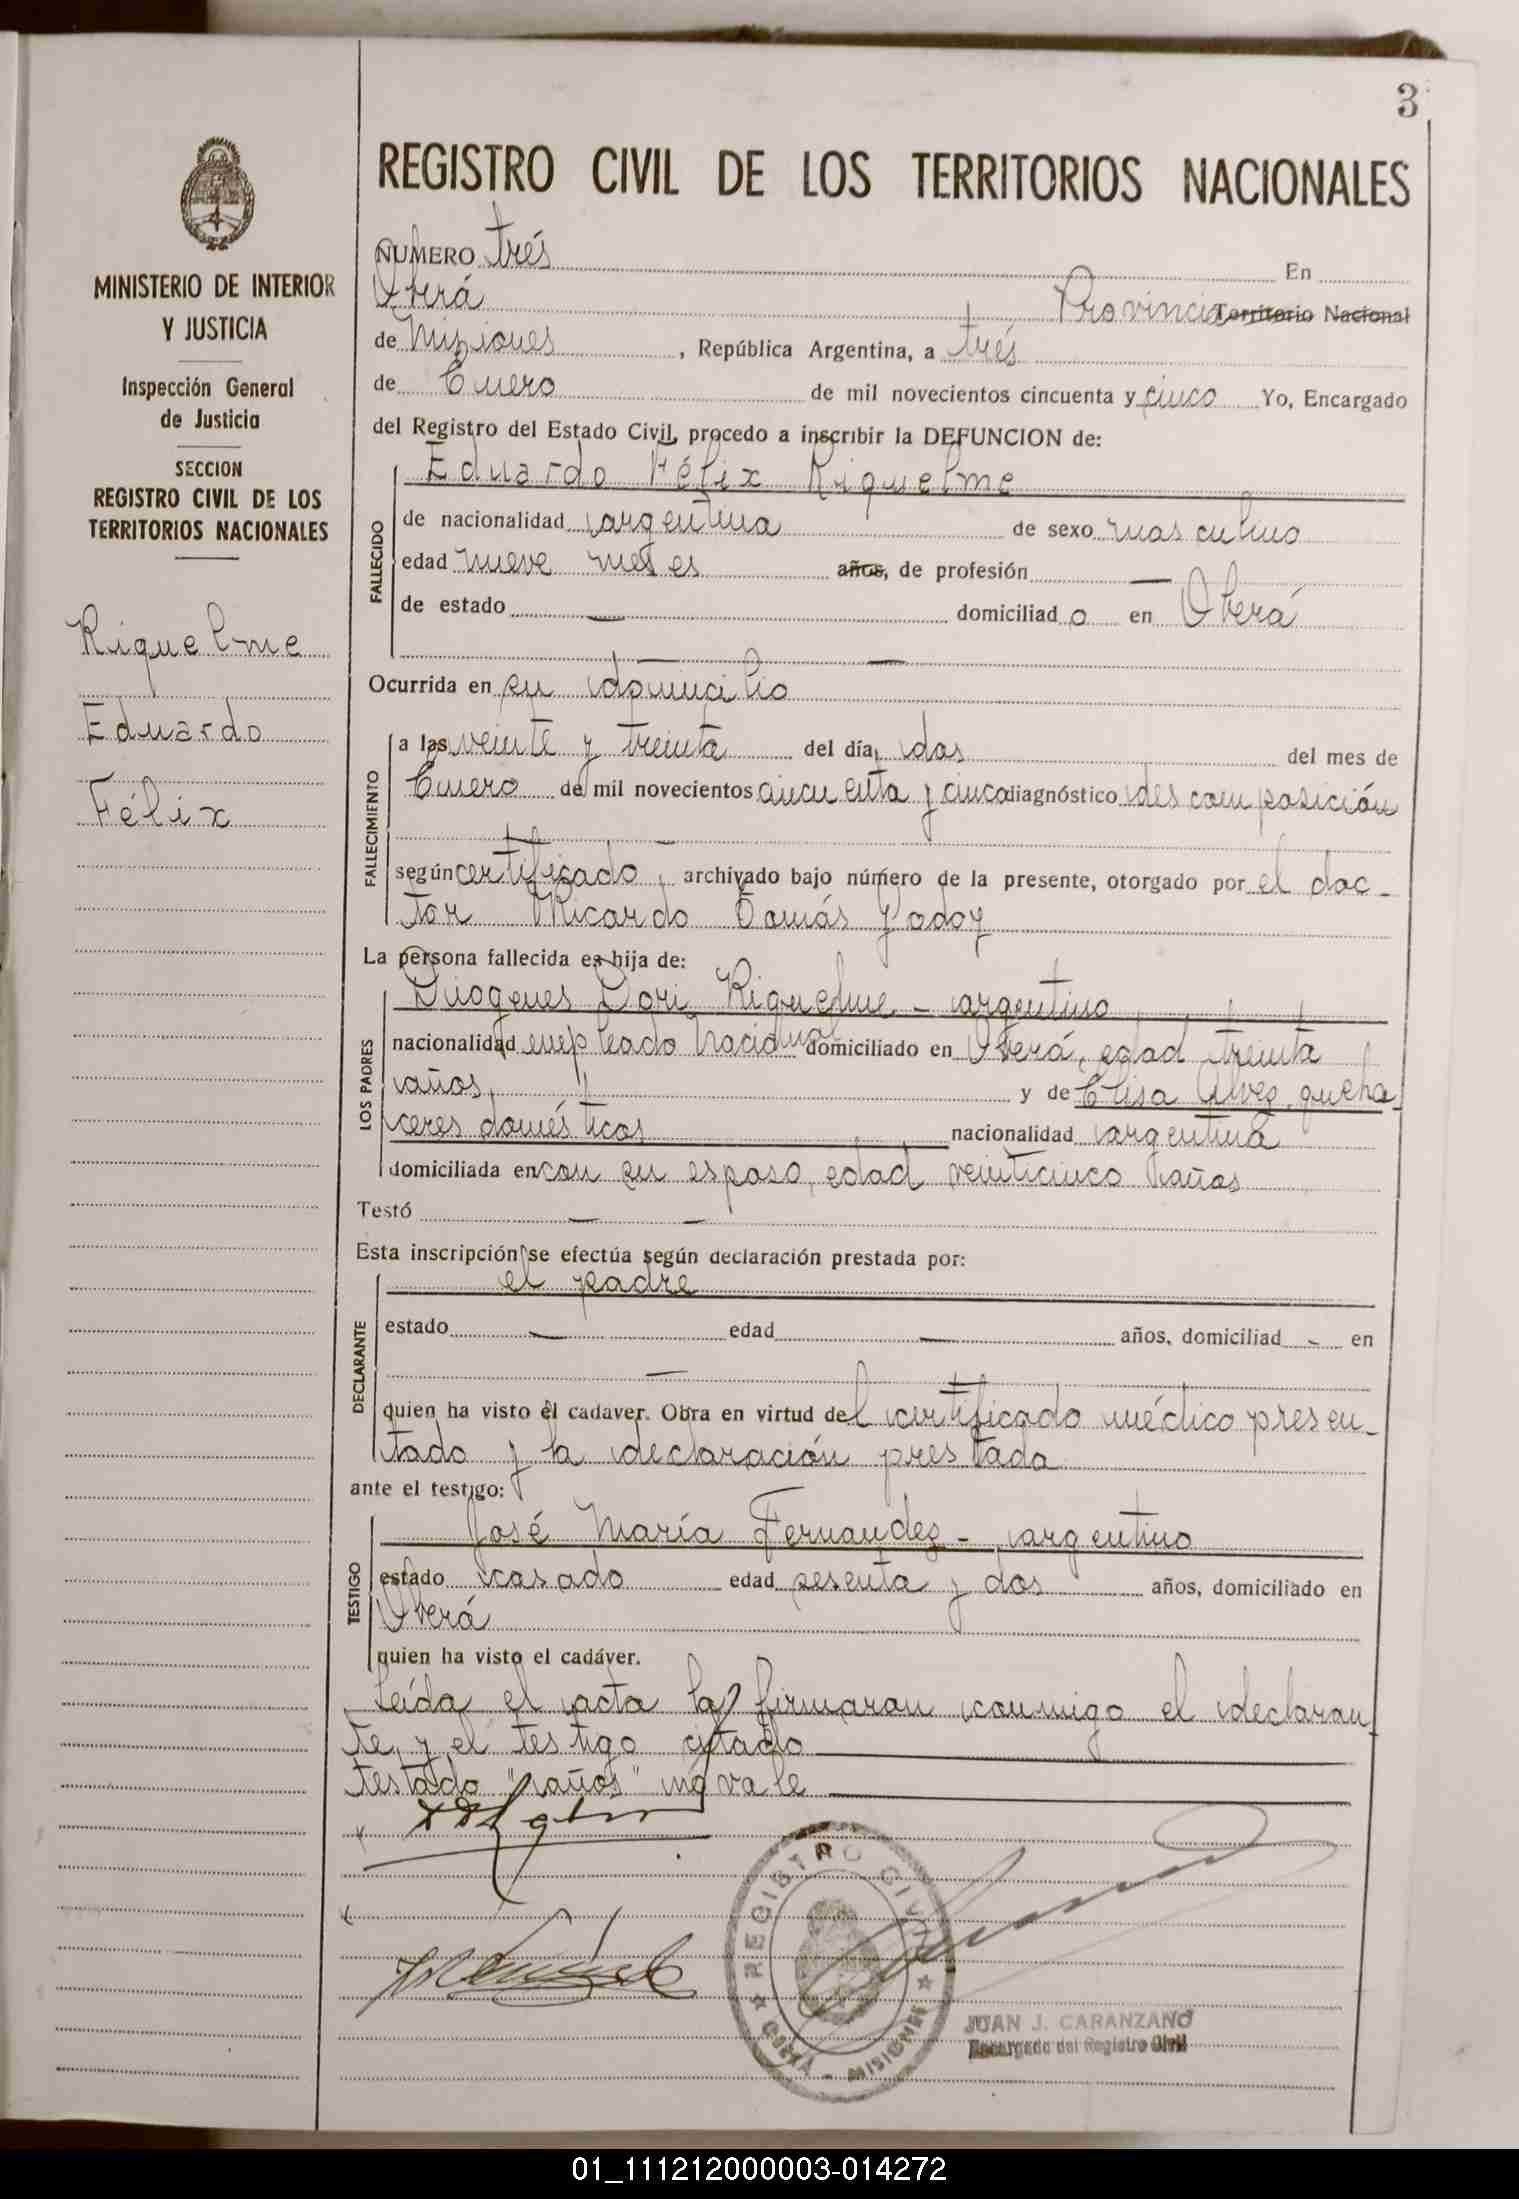 3
MINISTERIO DE INTERIOR
Y JUSTICIA
Inspección General
de Justicia
SECCION
REGISTRO CIVIL DE LOS
TERRITORIOS NACIONALES
Riquelme
Eduardo
Félix
REGISTRO CIVIL DE LOS TERRITORIOS NACIONALES
NUMERO trés En
Oberá Provincia Territorio Nacional
de Misiones, República Argentina, a trés
de Enero de mil novecientos cincuenta y cinco Yo, Encargado
del Registro del Estado Civil, procedo a inscribir la DEFUNCION de:
FALLECIDO
Eduardo Félix Riquelme
de nacionalidad argentina de sexo masculino
edad nueve meses años, de profesión —
de estado — domiciliado en Oberá
— —
Ocurrida en su domicilio
FALLECIMIENTO
a las veinte y treinta del día dos del mes de
Enero de mil novecientos cincuenta y cinco diagnóstico descomposición
según certificado archivado bajo número de la presente, otorgado por el doc-
tor Ricardo Tomás Godoy
La persona fallecida es hija de:
LOS PADRES
Diogenes Dori Riquelme - argentino
nacionalidad empleado nacional domiciliado en Oberá, edad treinta
años, y de Elisa Alvez, queha-
ceres domésticos nacionalidad argentina
domiciliada en con su esposo, edad veinticinco años
Testó — —
Esta inscripción se efectúa según declaración prestada por:
DECLARANTE
el padre
estado — edad — años, domiciliad - en
—
quien ha visto el cadáver. Obra en virtud del certificado médico presen-
tado y la declaración prestada
ante el testigo:
TESTIGO
José María Fernandez - argentino
estado casado edad sesenta y dos años, domiciliado en
Oberá
quien ha visto el cadáver.
Leída el acta la firmaron conmigo el declaran-
te, y el testigo citado
testado "años" no vale
REGISTRO CIVIL
OBERÁ - MISIONES
JUAN J. CARANZANO
Encargado del Registro Civil
01_111212000003-014272